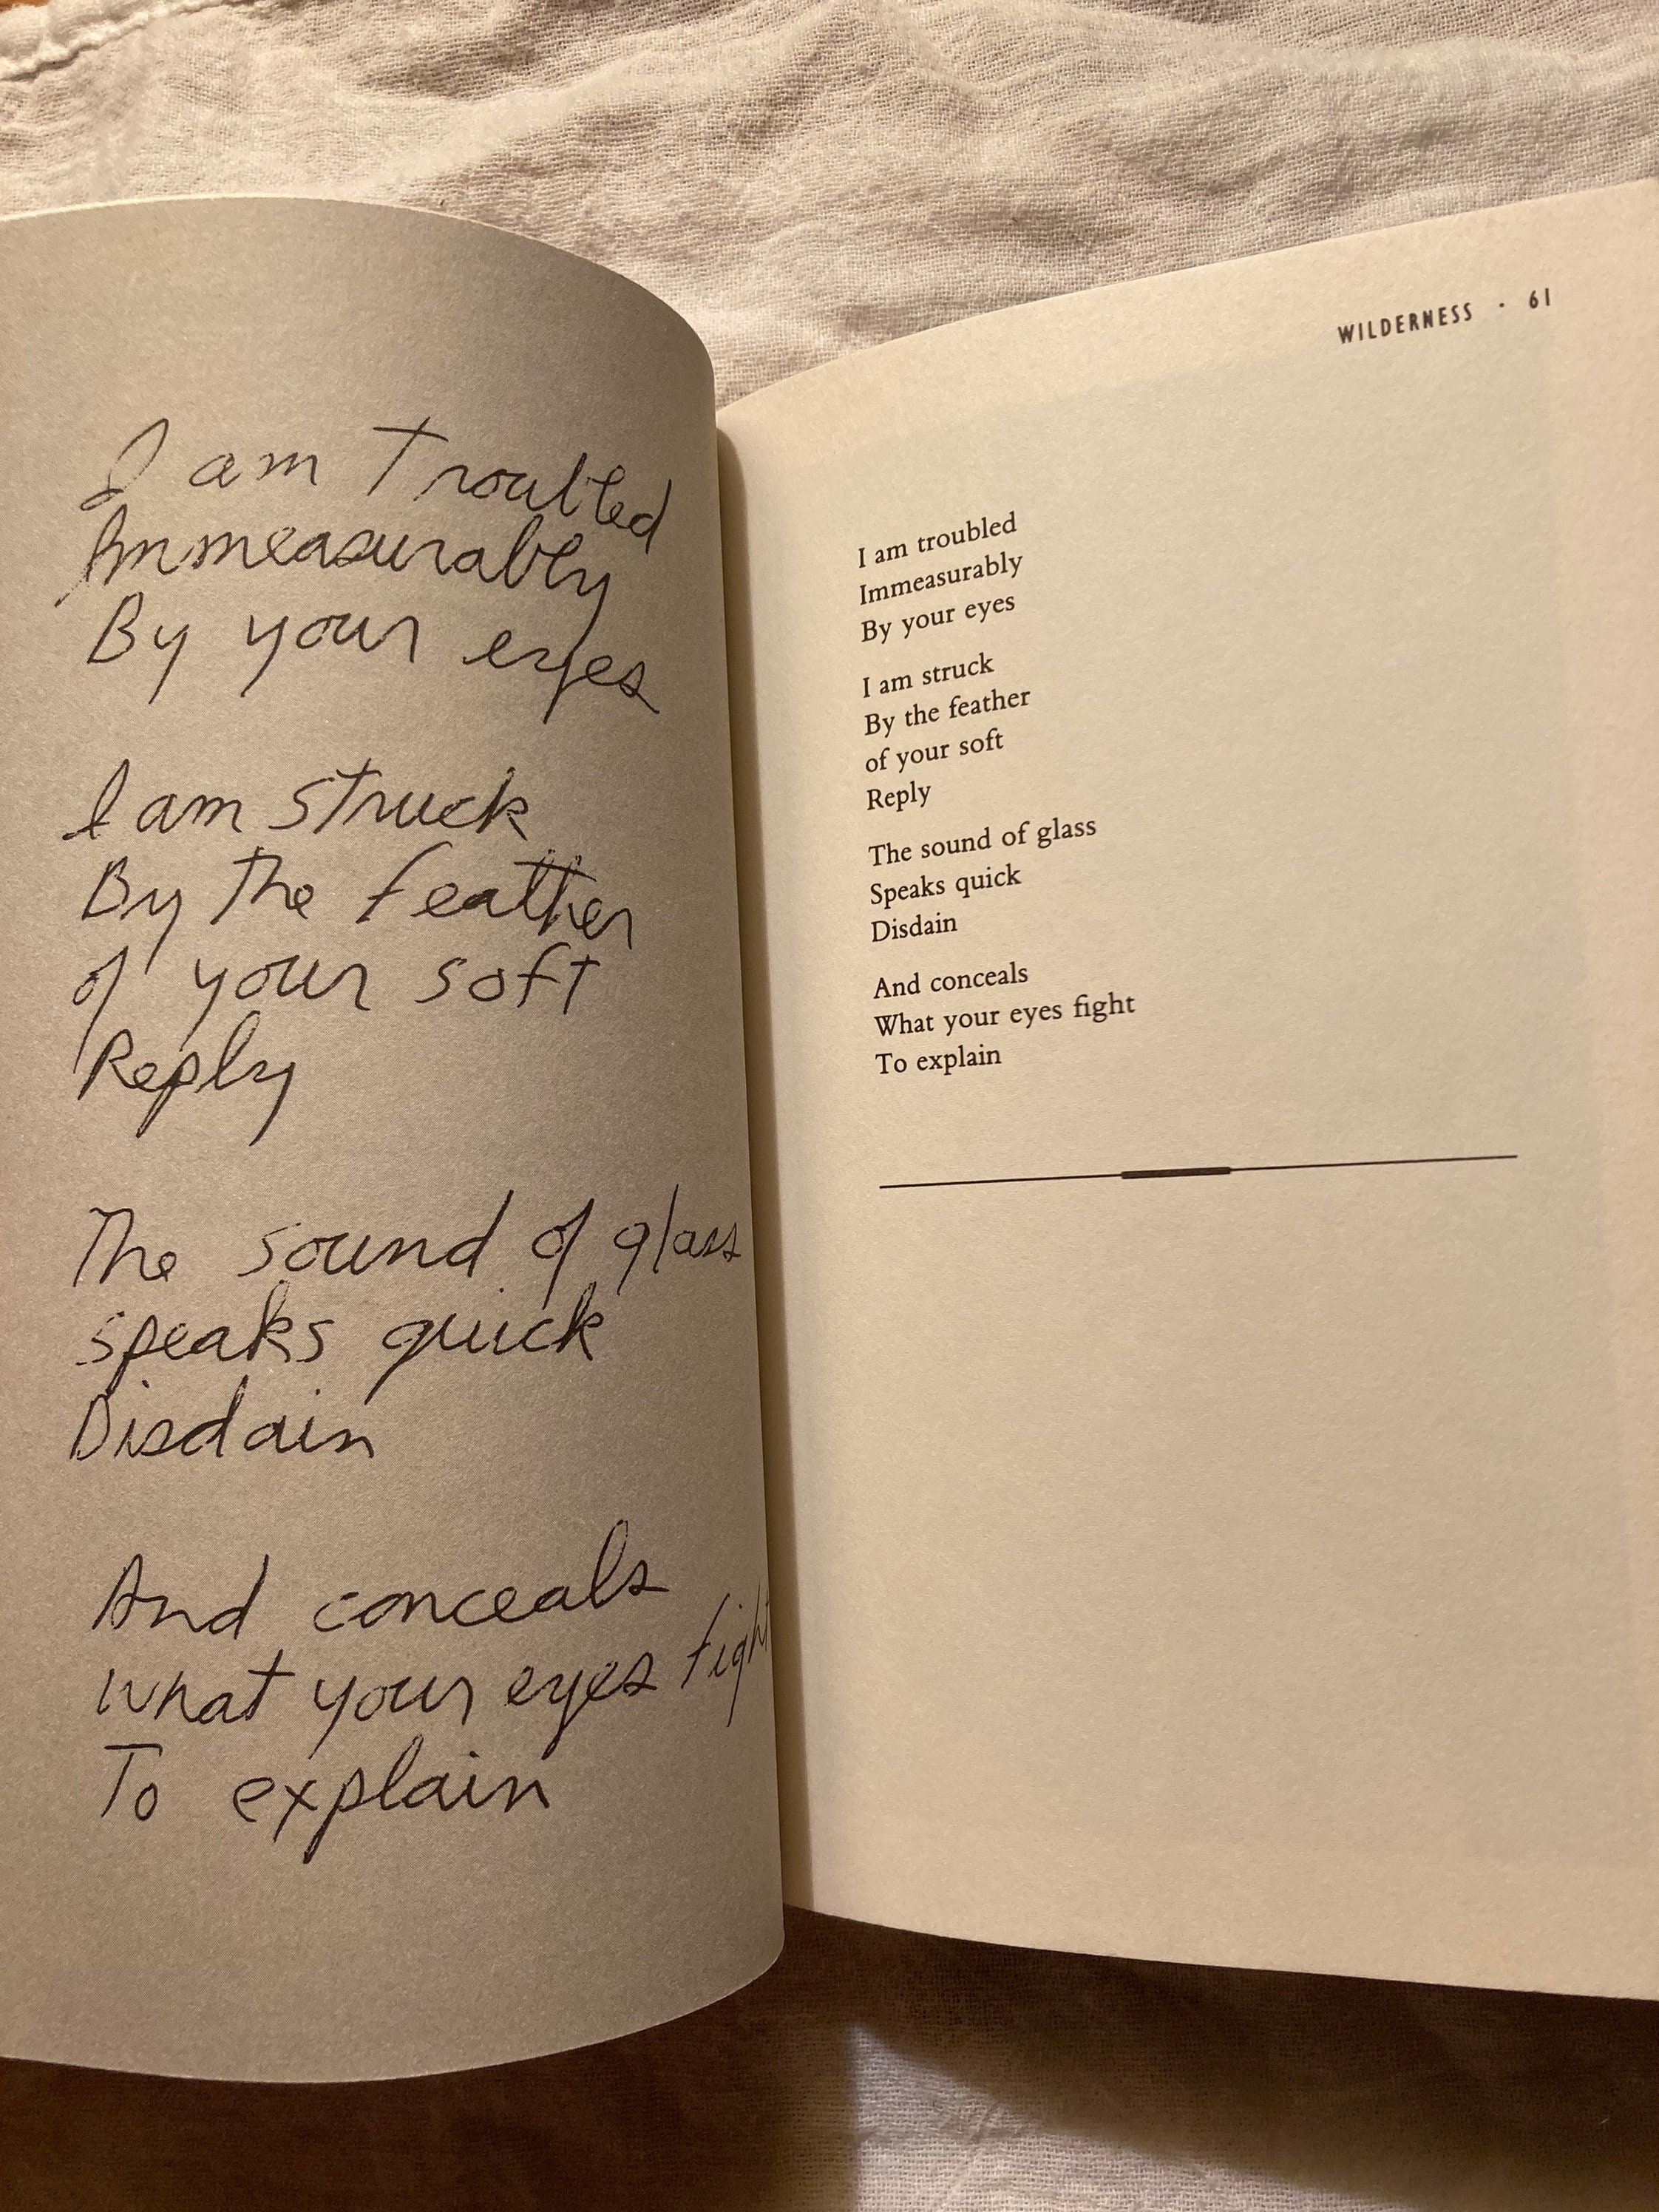 I am Troubled
Immeasurably
By your eyes
I am struck
By the feather
of your soft
Reply
The sound of glass
speaks quick
Disdain
And conceals
what your eyes fight
To explain
WILDERNESS · 61
I am troubled
Immeasurably
By your eyes
I am struck
By the feather
of your soft
Reply
The sound of glass
Speaks quick
Disdain
And conceals
What your eyes fight
To explain